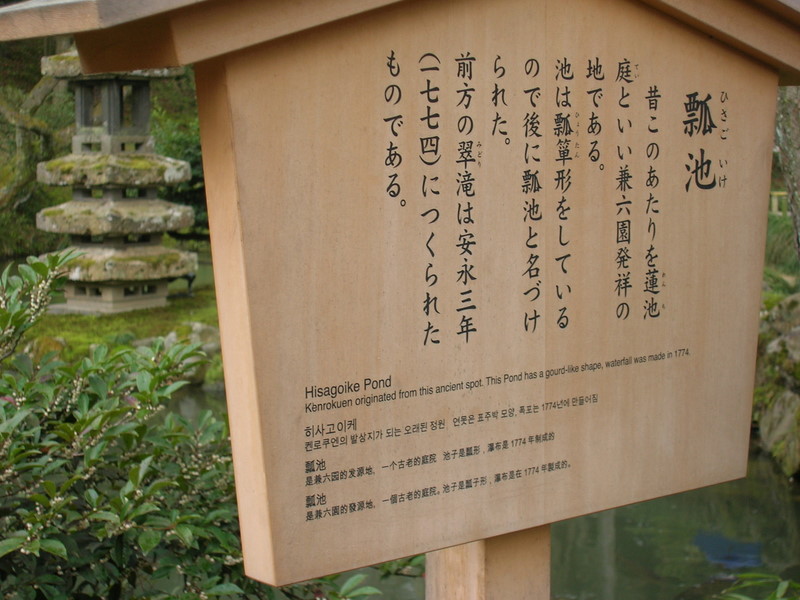 瓢池
ひさご いけ
昔このあたりを蓮池
れん ち
庭といい兼六園発祥の
てい
地である。
池は瓢箪形をしている
ひょうたん
ので後に瓢池と名づけ
られた。
前方の翠滝は安永三年
みどり
(一七七四)につくられた
ものである。
Hisagoike Pond
Kenrokuen originated from this ancient spot. This Pond has a gourd-like shape, waterfall was made in 1774.
히사고이케
켄로쿠엔의 발상지가 되는 오래된 정원 연못은 표주박 모양, 폭포는 1774년에 만들어짐
瓢池
是兼六园的发源地，一个古老的庭院 池子是瓢形，瀑布是 1774 年制成的
瓢池
是兼六園的發源地，一個古老的庭院。池子是瓢子形，瀑布是在 1774 年製成的。